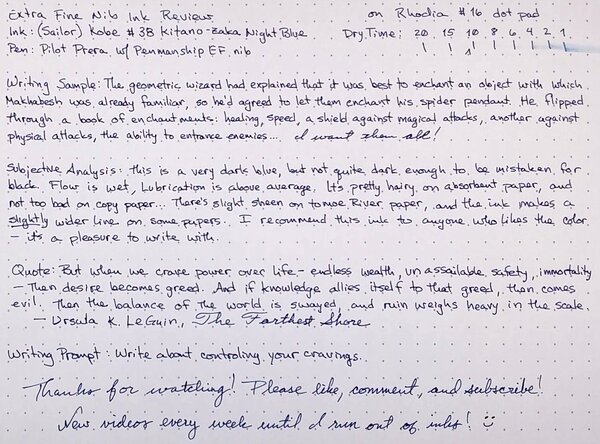 Extra Fine Nib Ink Review on Rhodia #16 dot pad
Ink: (Sailor) Kobe #38 Kitano-zaka Night Blue Dry Time: 20 15 10 8 6 4 2 1
Pen: Pilot Prera w/ Penmanship EF nib
Writing Sample: The geometric wizard had explained that it was best to enchant an object with which
Makhabesh was already familiar, so he'd agreed to let them enchant his spider pendant. He flipped
through a book of enchantments: healing, speed, a shield against magical attacks, another against
physical attacks, the ability to entrance enemies... I want them all!
Subjective Analysis: this is a very dark blue, but not quite dark enough to be mistaken for
black. Flow is wet, Lubrication is above average. It's pretty hairy on absorbent paper, and
not too bad on copy paper... There's slight sheen on tomoe River paper, and the ink makes a
slightly wider line on some papers. I recommend this ink to anyone who likes the color
- it's a pleasure to write with.
Quote: But when we crave power over life - endless wealth, unassailable safety, immortality
- Then desire becomes greed. And if knowledge allies itself to that greed, then comes
evil. Then the balance of the world is swayed, and ruin weighs heavy in the scale.
- Ursula K. LeGuin, The Farthest Shore
Writing Prompt: Write about controling your cravings.
Thanks for watching! Please like, comment, and subscribe!
New videos every week until I run out of inks!